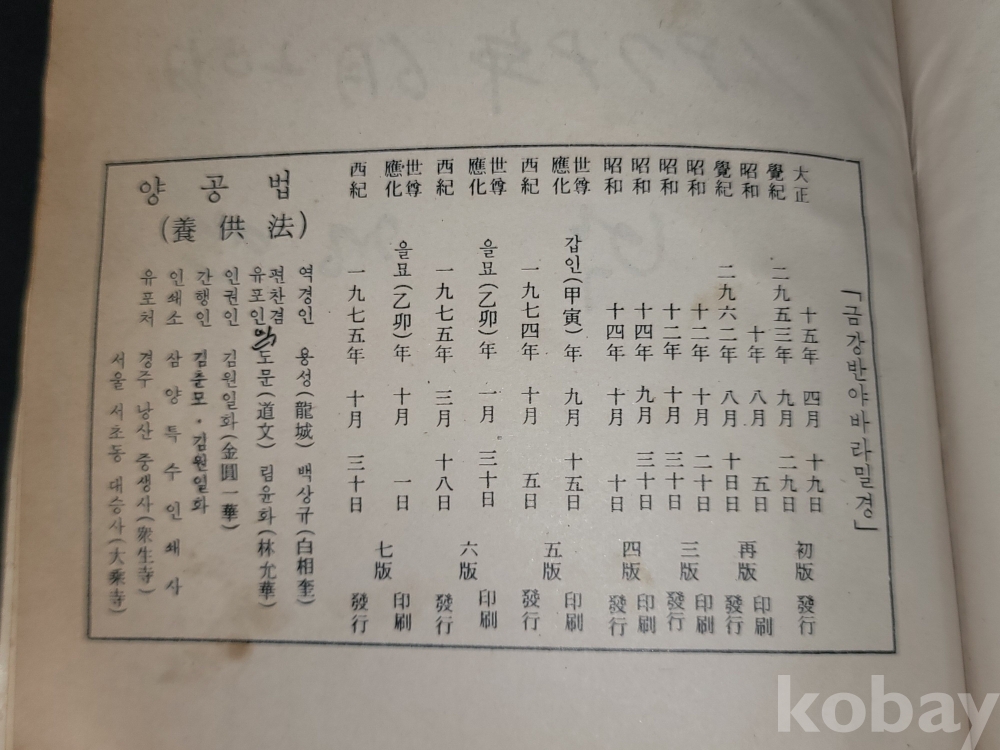 「금강반야바라밀경」
大正 十五年 四月 十九日 初版 發行
覺紀 二九五三年 九月 二九日
昭和 十年 八月 五日 再版 印刷
覺紀 二九六二年 八月 十日日 發行
昭和 十二年 十月 二十日 三版 印刷
昭和 十二年 十月 三十日 發行
昭和 十四年 九月 三十日 四版 印刷
昭和 十四年 十月 十日 發行
世尊應化 갑인(甲寅)年 九月 十五日 五版 印刷
西紀 一九七四年 十月 五日 發行
世尊應化 을묘(乙卯)年 一月 三十日 六版 印刷
西紀 一九七五年 三月 十八日 發行
世尊應化 을묘(乙卯)年 十月 一日 七版 印刷
西紀 一九七五年 十月 三十日 發行
법공양
(法供養)
역경인 용성(龍城) 백상규(白相奎)
편찬겸 유포인 도문(道文) 림윤화(林允華)
인권인 김원일화(金圓一華)
간행인 김춘모·김원일화
인쇄소 삼양특수인쇄사
유포처 경주 낭산 중생사(衆生寺)
서울 서초동 대승사(大乘寺)
kobay